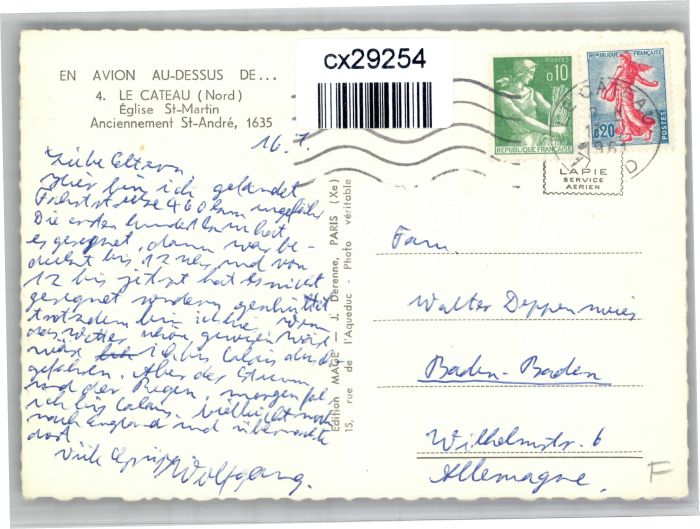 cx29254
EN AVION AU-DESSUS DE...
4. LE CATEAU (Nord)
Église St-Martin
Anciennement St-André, 1635
POSTES
0,10
REPUBLIQUE FRANÇAISE
REPUBLIQUE FRANÇAISE
0,20
POSTES
LAPIE
SERVICE
AERIEN
16.7.
Liebe Eltern
Hier bin ich gelandet
Fahrtstrecke 460 km ungefähr
Die ersten hundert km hat
es geregnet, dann war be-
deckt bis 12 Uhr und von
12 bis jetzt hat es nicht
geregnet sondern geschüttet
trotzdem bin ich hier. Wenn
das Wetter schön gewesen wär
wär ich bis Calais durch
gefahren. Aber der Sturm
und der Regen, morgen fahr
ich bis Calais. Vielleicht noch
nach England und übernachte
dort
Viele Grüsse Wolfgang.
Edition MAGE - J. Derenne, PARIS (Xe)
15, rue de l'Aqueduc - Photo véritable
Fam.
Walter Deppenwies
Baden-Baden
Wilhelmstr. 6
Allemagne.
F